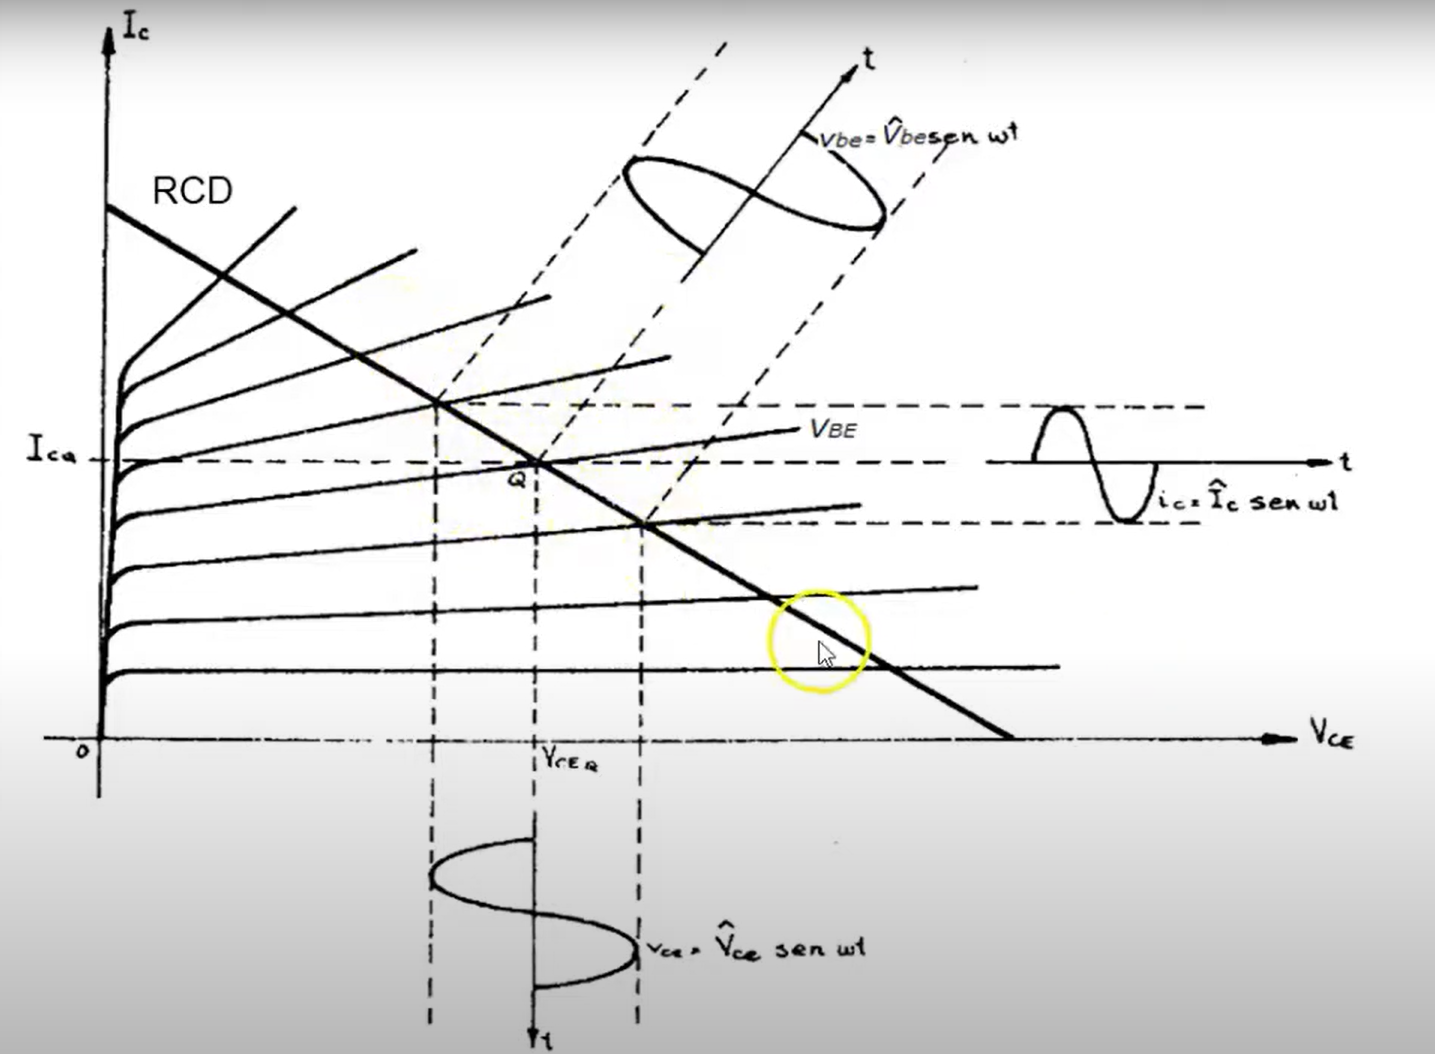 Ic
t
vbe = V̂be sen wt
RCD
VBE
IcQ
Q
t
ic = Îc sen wt
0
VCEQ
VCE
vce = V̂ce sen wt
t